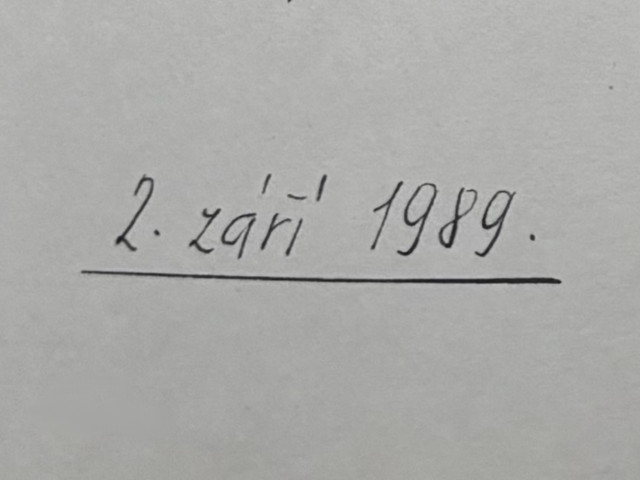 2. září 1989.